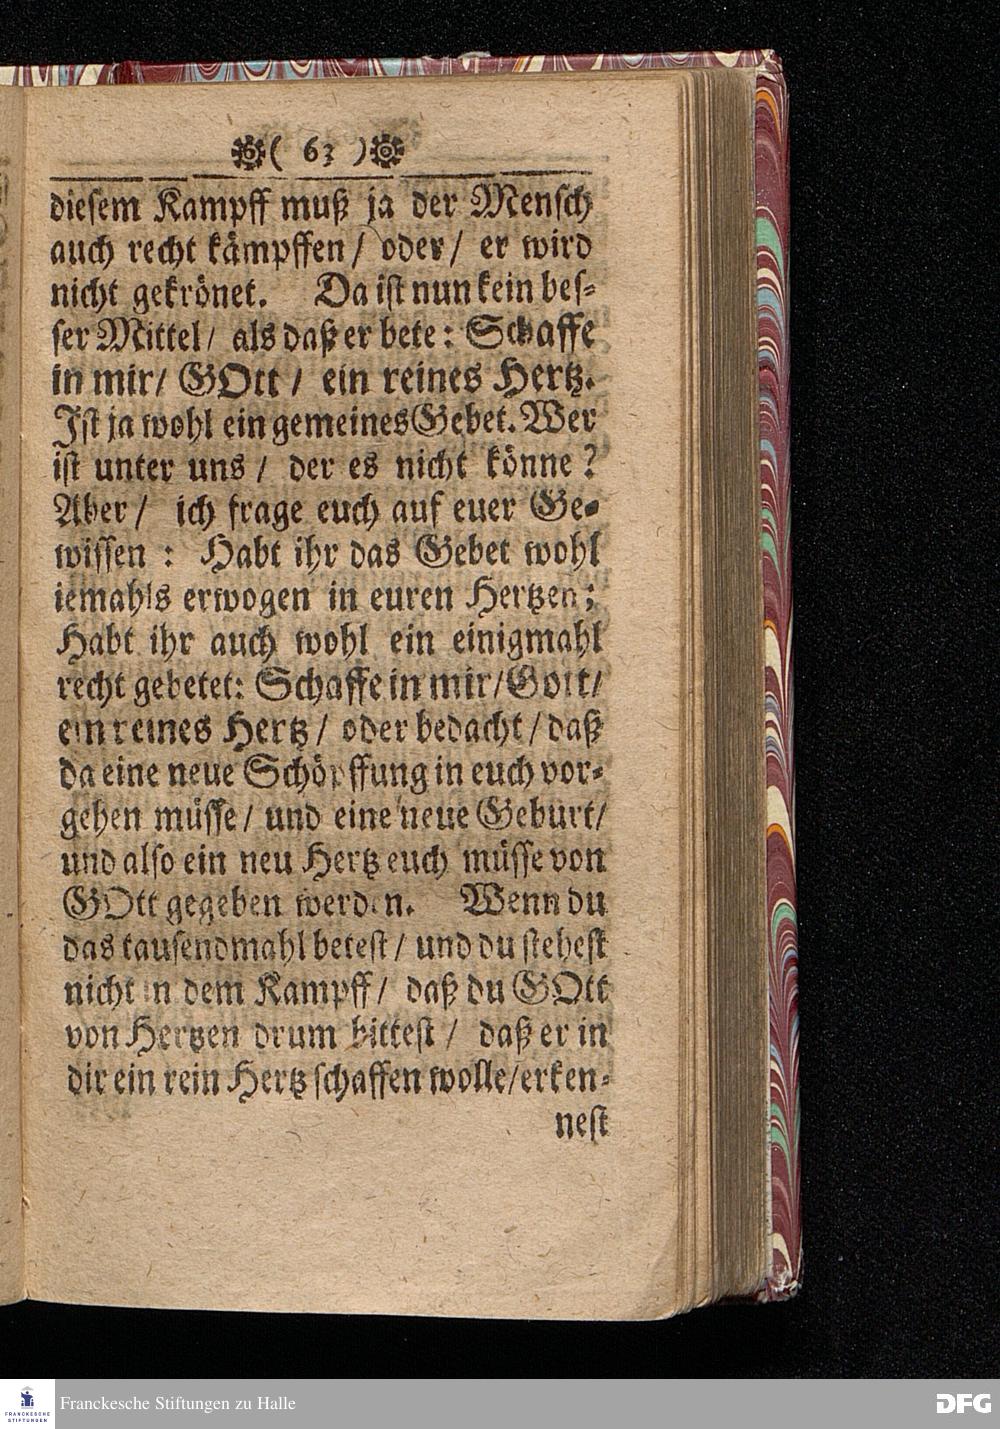 ( 63 )
diesem Kampff muß ja der Mensch
auch recht kämpffen / oder / er wird
nicht gekrönet. Da ist nun kein bes-
ser Mittel / als daß er bete: Schaffe
in mir / GOtt / ein reines Hertz.
Ist ja wohl ein gemeines Gebet. Wer
ist unter uns / der es nicht könne?
Aber / ich frage euch auf euer Ge-
wissen : Habt ihr das Gebet wohl
iemahls erwogen in euren Hertzen;
Habt ihr auch wohl ein einigmahl
recht gebetet: Schaffe in mir / Gott /
ein reines Hertz / oder bedacht / daß
da eine neue Schöpffung in euch vor-
gehen müsse / und eine neue Geburt /
und also ein neu Hertz euch müsse von
GOtt gegeben werden. Wenn du
das tausendmahl betest / und du stehest
nicht in dem Kampff / daß du GOtt
von Hertzen drum bittest / daß er in
dir ein rein Hertz schaffen wolle / erken-
nest
FRANCKESCHE
STIFTUNGEN
Franckesche Stiftungen zu Halle
DFG